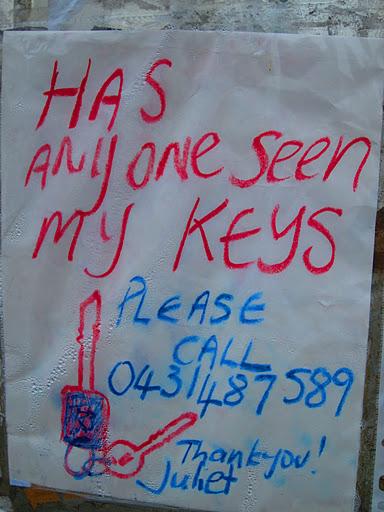 HAS
ANYONE SEEN
MY KEYS
PLEASE
CALL
0431487589
Thankyou!
Juliet